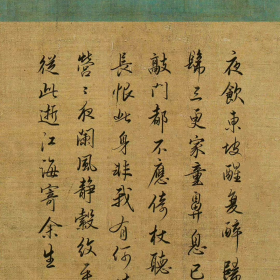 夜飲東坡醒復醉歸
髴三更家童鼻息已
敲門都不應倚杖聽
長恨此身非我有何
營〻夜闌風靜縠紋平
從此逝江海寄余生